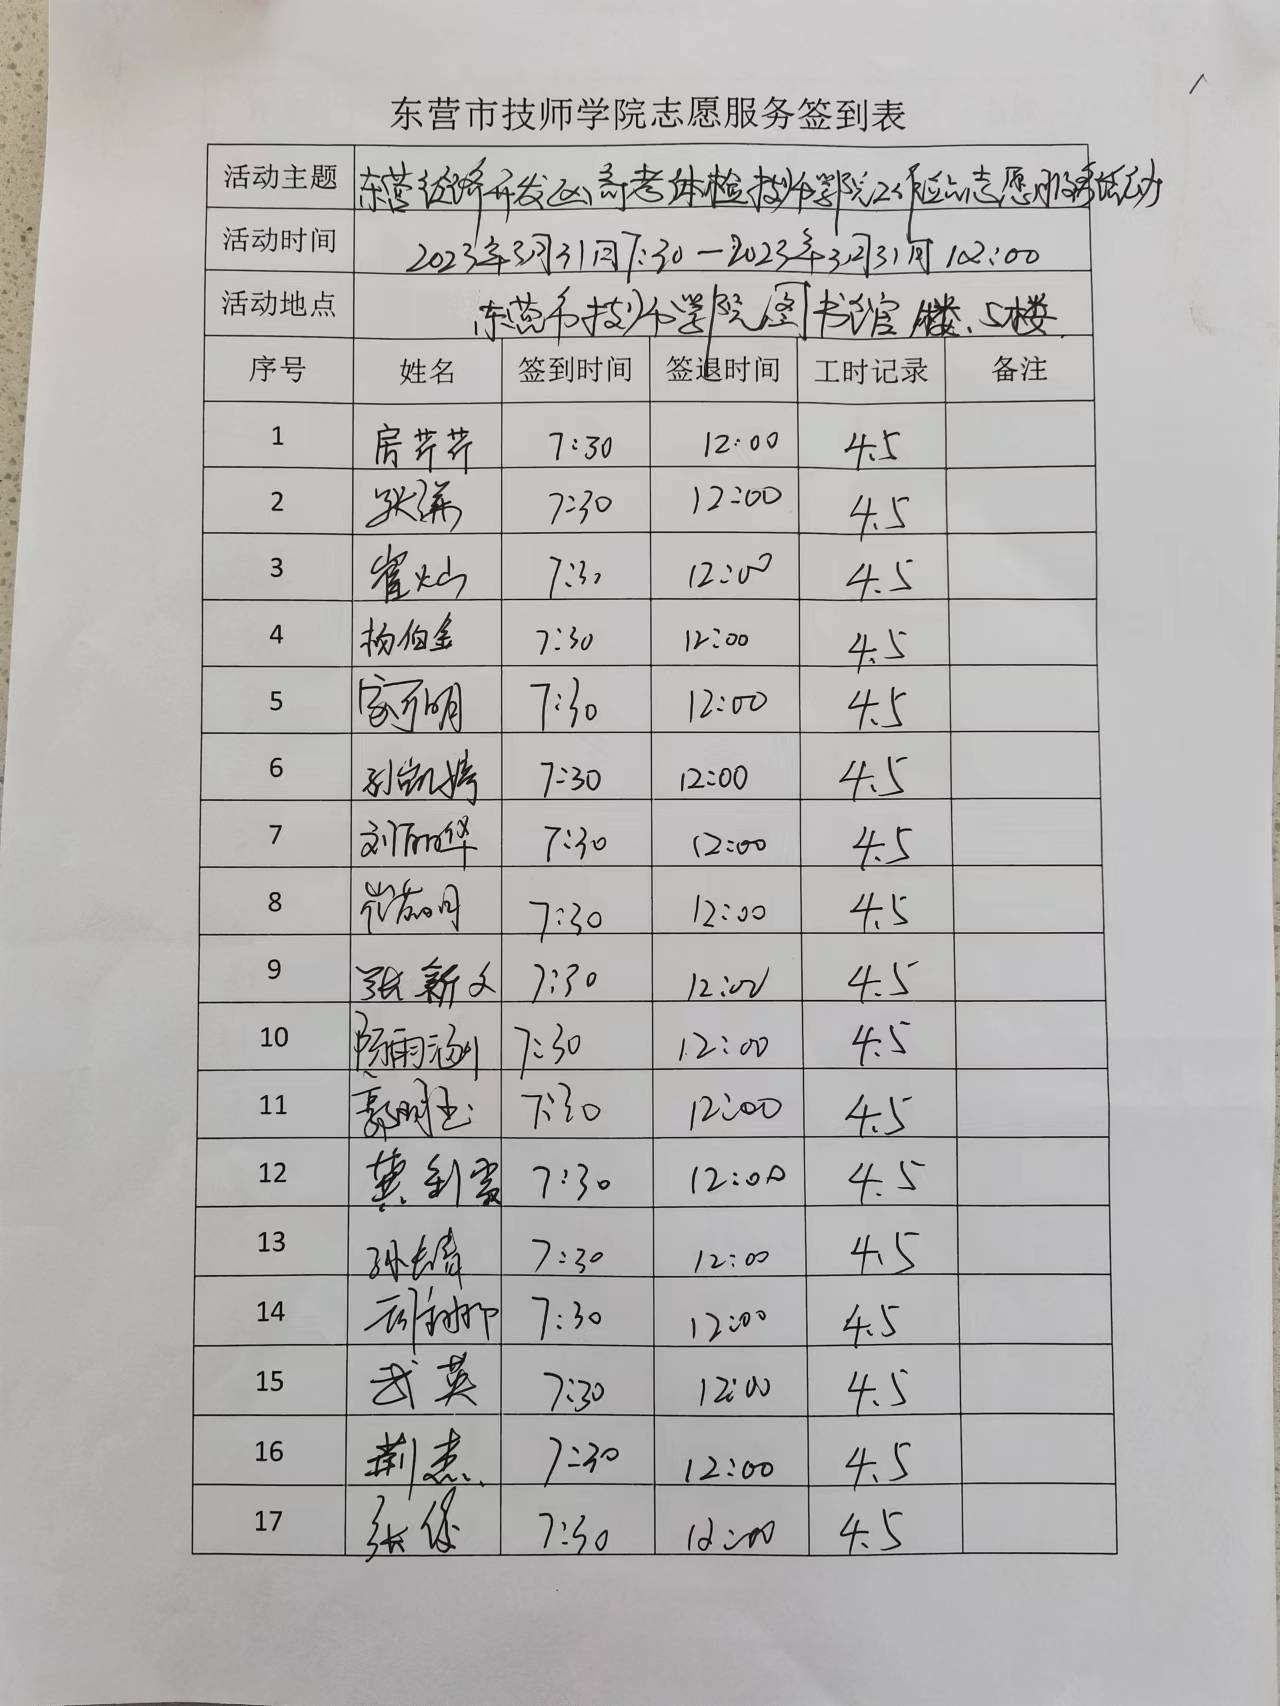 东营市技师学院志愿服务签到表
活动主题 东营经济开发区高考体检技师学院工作站志愿服务活动
活动时间 2023年3月31日7:30-2023年3月31日12:00
活动地点 东营市技师学院图书馆1楼、5楼
序号 姓名 签到时间 签退时间 工时记录 备注
1 房芹芹 7:30 12:00 4.5
2 7:30 12:00 4.5
3 崔灿 7:30 12:00 4.5
4 杨伯金 7:30 12:00 4.5
5 7:30 12:00 4.5
6 孙凯婷 7:30 12:00 4.5
7 刘丽华 7:30 12:00 4.5
8 7:30 12:00 4.5
9 张新文 7:30 12:00 4.5
10 陈雨涵 7:30 12:00 4.5
11 郭明玉 7:30 12:00 4.5
12 7:30 12:00 4.5
13 7:30 12:00 4.5
14 7:30 12:00 4.5
15 武英 7:30 12:00 4.5
16 荆杰 7:30 12:00 4.5
17 张 7:30 12:00 4.5